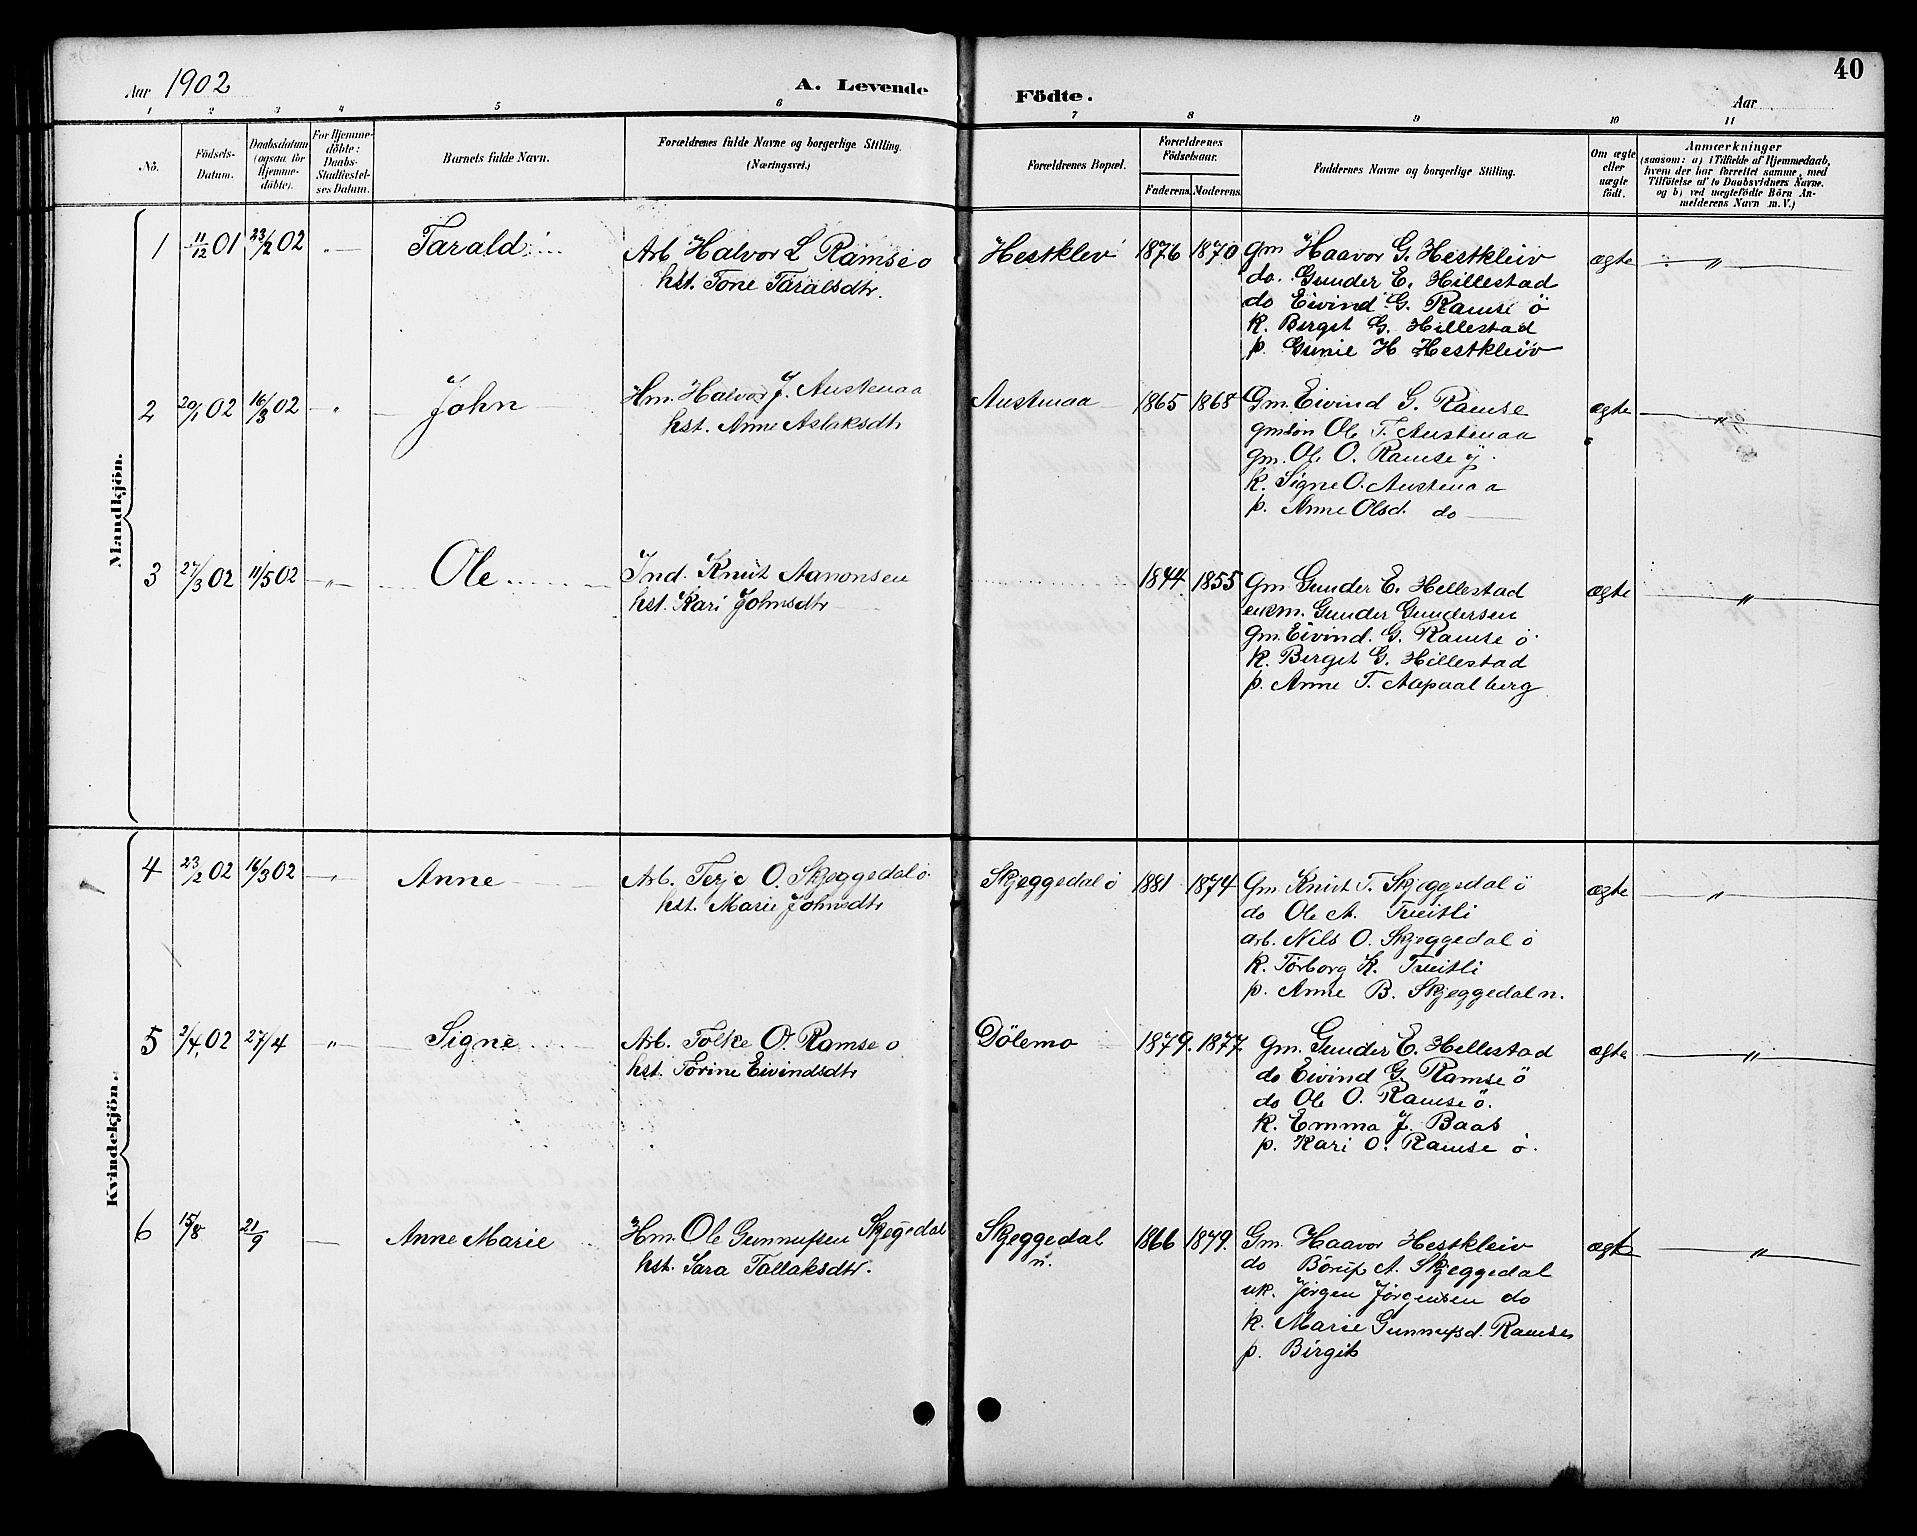 Aar 1902
A. Levende Födte.
40
Aar
1 2 3 4 5 6 7 8 9 10 11
No.
Födsels-Datum.
Daabsdatum (ogsaa for Hjemme-döbte).
For Hjemme-döbte: Daabs-Stadfæstel-ses Datum.
Barnets fulde Navn.
Forældrenes fulde Navne og borgerlige Stilling. (Næringsvei.)
Forældrenes Bopæl.
Forældrenes Födselsaar.
Faderens. Moderens.
Faddernes Navne og borgerlige Stilling.
Om ægte eller uægte födt.
Anmærkninger
(saasom: a) i Tilfælde af Hjemmedaab,
hvem der har forrettet samme, med
Tilföielse af to Daabsvidners Navne.
og b) ved uægtefödte Börn An-
melderens Navn m. V.)
Mandkjön.
1 11/12 01 23/2 02 " Tarald Arb Halvor L Ramse ö Hestklev 1876 1870 gm Haavor G. Hestkleiv ægte "
hst. Tone Taralsdtr.
do. Gunder E. Hillestad
do Eivind G. Ramse ö
k. Berget G. Hillestad
p. Gunil H Hestkleiv
2 20/1 02 16/3 02 " John Hm. Halvor J. Austenaa Austenaa 1865 1868 Gm. Eivind G. Ramse ægte "
hst. Anne Aslaksdtr
gmsön Ole T. Austenaa
gm. Ole O. Ramse y.
k. Signe O. Austenaa
p. Anne Olsd. do
3 27/3 02 11/5 02 " Ole Ind. Knut Aanonsen 1844. 1855 gm Gunder E. Hellestad ægte "
hst. Kari Johnsdtr
enkm. Gunder Gundersen
gm. Eivind. G. Ramse ö
k. Berget G. Hillestad
p. Anne T. Aapaalberg
Kvindekjön.
4 23/2 02 16/3 02 " Anne Arb. Terje O. Skjeggedal ö Skjeggedal ö 1881 1874 Gm Knut T. Skjeggedal ö ægte "
hst. Marie Johnsdtr
do Ole A. Tveitli
arb. Nils O. Skjeggedal ö
k. Torborg K. Tveitli
p. Anne B. Skjeggedal n.
5 2/4. 02 27/4 " Signe Arb. Folke O. Ramse ö Dölemo 1879. 1877. gm. Gunder E. Hellestad ægte "
hst. Torine Eivindsdtr
do Eivind G. Ramse ö
do Ole O. Ramse ö.
k. Emma J. Baas
p. Kari O. Ramse ö.
6 15/8 21/9 Anne Marie Hm. Ole Gunnufsen Skjegedal Skjeggedal 1866 1879. Gm. Haavor Hestkleiv ægte "
hst. Sara Tallaksdtr. n.
do Börup A. Skjeggedal
uk. Jörgen Jörgensen do
k. Marie Gunnufsd. Ramse
p. Birgit